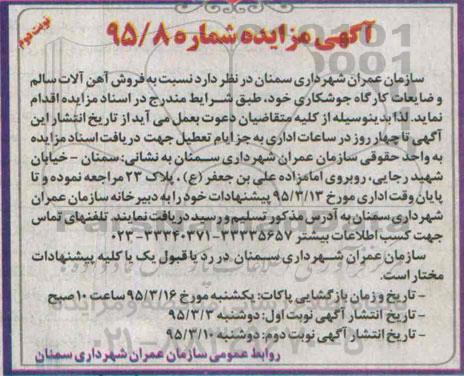 نوبت دوم
آگهی مزایده شماره ۹۵/۸
سازمان عمران شهرداری سمنان در نظر دارد نسبت به فروش آهن آلات سالم
و ضایعات کارگاه جوشکاری خود، طبق شرایط مندرج در اسناد مزایده اقدام
نماید. لذا بدینوسیله از کلیه متقاضیان دعوت بعمل می آید از تاریخ انتشار این
آگهی تا چهار روز در ساعات اداری به جز ایام تعطیل جهت دریافت اسناد مزایده
به واحد حقوقی سازمان عمران شهرداری سمنان به نشانی: سمنان - خیابان
شهید رجایی، روبروی امامزاده علی بن جعفر (ع)، پلاک ۲۳ مراجعه نموده و تا
پایان وقت اداری مورخ ۹۵/۳/۱۳ پیشنهادات خود را به دبیرخانه سازمان عمران
شهرداری سمنان به آدرس مذکور تسلیم و رسید دریافت نمایند. تلفنهای تماس
جهت کسب اطلاعات بیشتر ۳۳۳۳۵۶۵۷-۳۳۳۴۰۳۷۱-۰۲۳
سازمان عمران شهرداری سمنان در رد یا قبول یک یا کلیه پیشنهادات
مختار است.
- تاریخ و زمان بازگشایی پاکات: یکشنبه مورخ ۹۵/۳/۱۶ ساعت ۱۰ صبح
- تاریخ انتشار آگهی نوبت اول: دوشنبه ۹۵/۳/۳
- تاریخ انتشار آگهی نوبت دوم: دوشنبه ۹۵/۳/۱۰
روابط عمومی سازمان عمران شهرداری سمنان